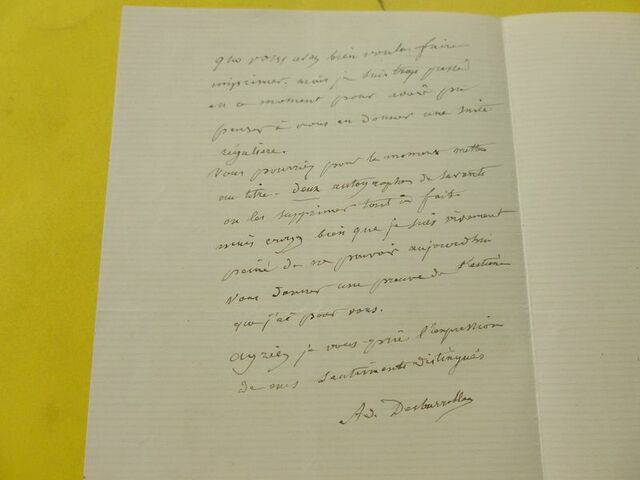 que vous avez bien voulu faire
imprimer. mais je suis trop pressé
en ce moment pour avoir pu
penser à vous en donner une suite
régulière.
Vous pourriez pour le moment mettre
au titre - Deux autographes de savants
ou les supprimer tout à fait
mais croyez bien que je suis vivement
peiné de ne pouvoir aujourd'hui
vous donner une preuve de l'estime
que j'ai pour vous.
agréez je vous prie l'expression
de mes sentiments distingués
Ad. Desbarrolles